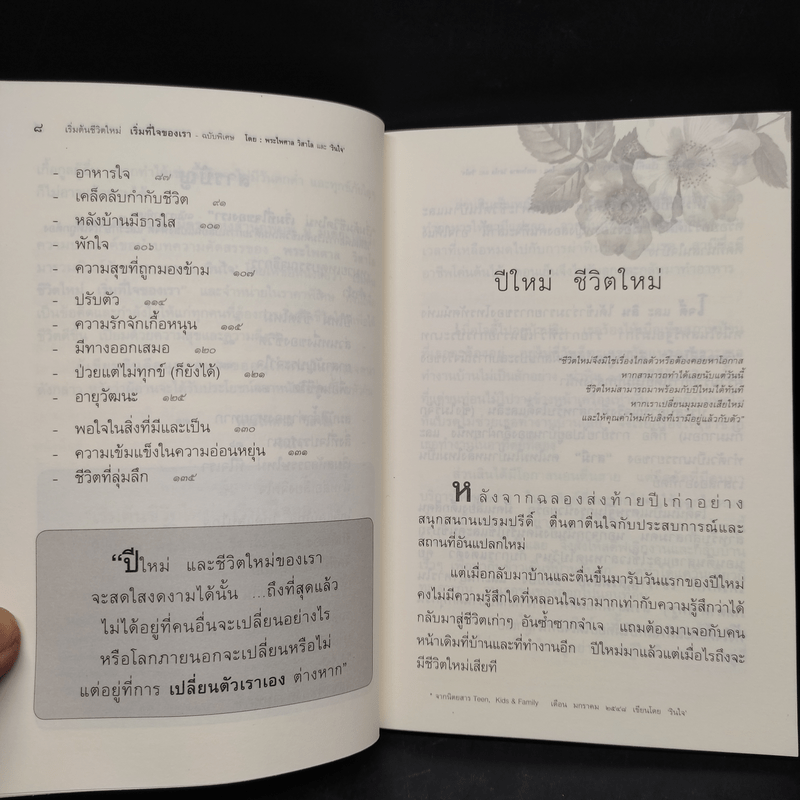 ๘ เริ่มต้นชีวิตใหม่ เริ่มที่ใจของเรา - ฉบับพิเศษ โดย : พระไพศาล วิสาโล และ 'รินใจ'
- อาหารใจ ๘๗
- เคล็ดลับกำกับชีวิต ๙๑
- หลังบ้านมีธารใส ๑๐๑
- พักใจ ๑๐๖
- ความสุขที่ถูกมองข้าม ๑๐๗
- ปรับตัว ๑๑๔
- ความรักจักเกื้อหนุน ๑๑๕
- มีทางออกเสมอ ๑๒๐
- ป่วยแต่ไม่ทุกข์ (ก็ยังได้) ๑๒๑
- อายุวัฒนะ ๑๒๕
- พอใจในสิ่งที่มีและเป็น ๑๓๐
- ความเข้มแข็งในความอ่อนหยุ่น ๑๓๑
- ชีวิตที่ลุ่มลึก ๑๓๕
“ปีใหม่ และชีวิตใหม่ของเรา
จะสดใสงดงามได้นั้น ...ถึงที่สุดแล้ว
ไม่ได้อยู่ที่คนอื่นจะเปลี่ยนอย่างไร
หรือโลกภายนอกจะเปลี่ยนหรือไม่
แต่อยู่ที่การ เปลี่ยนตัวเราเอง ต่างหาก”
ปีใหม่ ชีวิตใหม่
“ชีวิตใหม่จึงมิใช่เรื่องไกลตัวหรือต้องคอยหาโอกาส
หากสามารถทำได้เลยนับแต่วันนี้
ชีวิตใหม่สามารถมาพร้อมกับปีใหม่ได้ทันที
หากเราเปลี่ยนมุมมองเสียใหม่
และให้คุณค่าใหม่กับสิ่งที่เรามีอยู่แล้วกับตัว”
หลังจากฉลองส่งท้ายปีเก่าอย่าง
สนุกสนานเปรมปรีดิ์ ตื่นตาตื่นใจกับประสบการณ์และ
สถานที่อันแปลกใหม่
แต่เมื่อกลับมาบ้านและตื่นขึ้นมารับวันแรกของปีใหม่
คงไม่มีความรู้สึกใดที่หลอนใจเรามากเท่ากับความรู้สึกว่าได้
กลับมาสู่ชีวิตเก่าๆ อันซ้ำซากจำเจ แถมต้องมาเจอกับคน
หน้าเดิมที่บ้านและที่ทำงานอีก ปีใหม่มาแล้วแต่เมื่อไรถึงจะ
มีชีวิตใหม่เสียที
* จากนิตยสาร Teen, Kids & Family เดือน มกราคม ๒๕๔๘ เขียนโดย 'รินใจ'